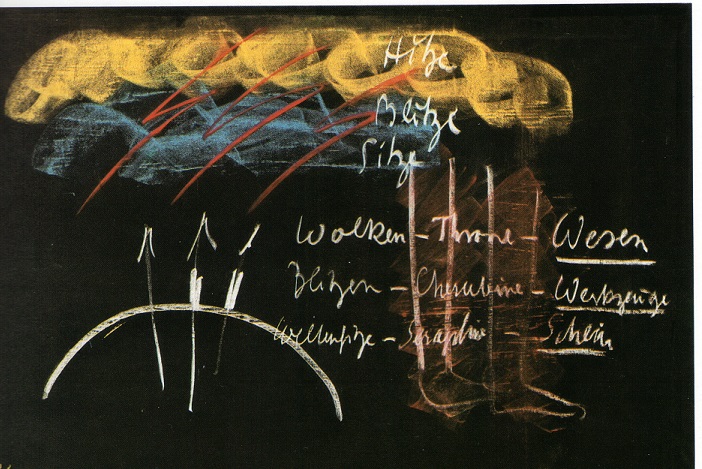 Hitze
Blitze
Sitze
Wolken – Throne – Wesen
Blitzen – Cherubine – Werkzeuge
– Seraphine – Schein